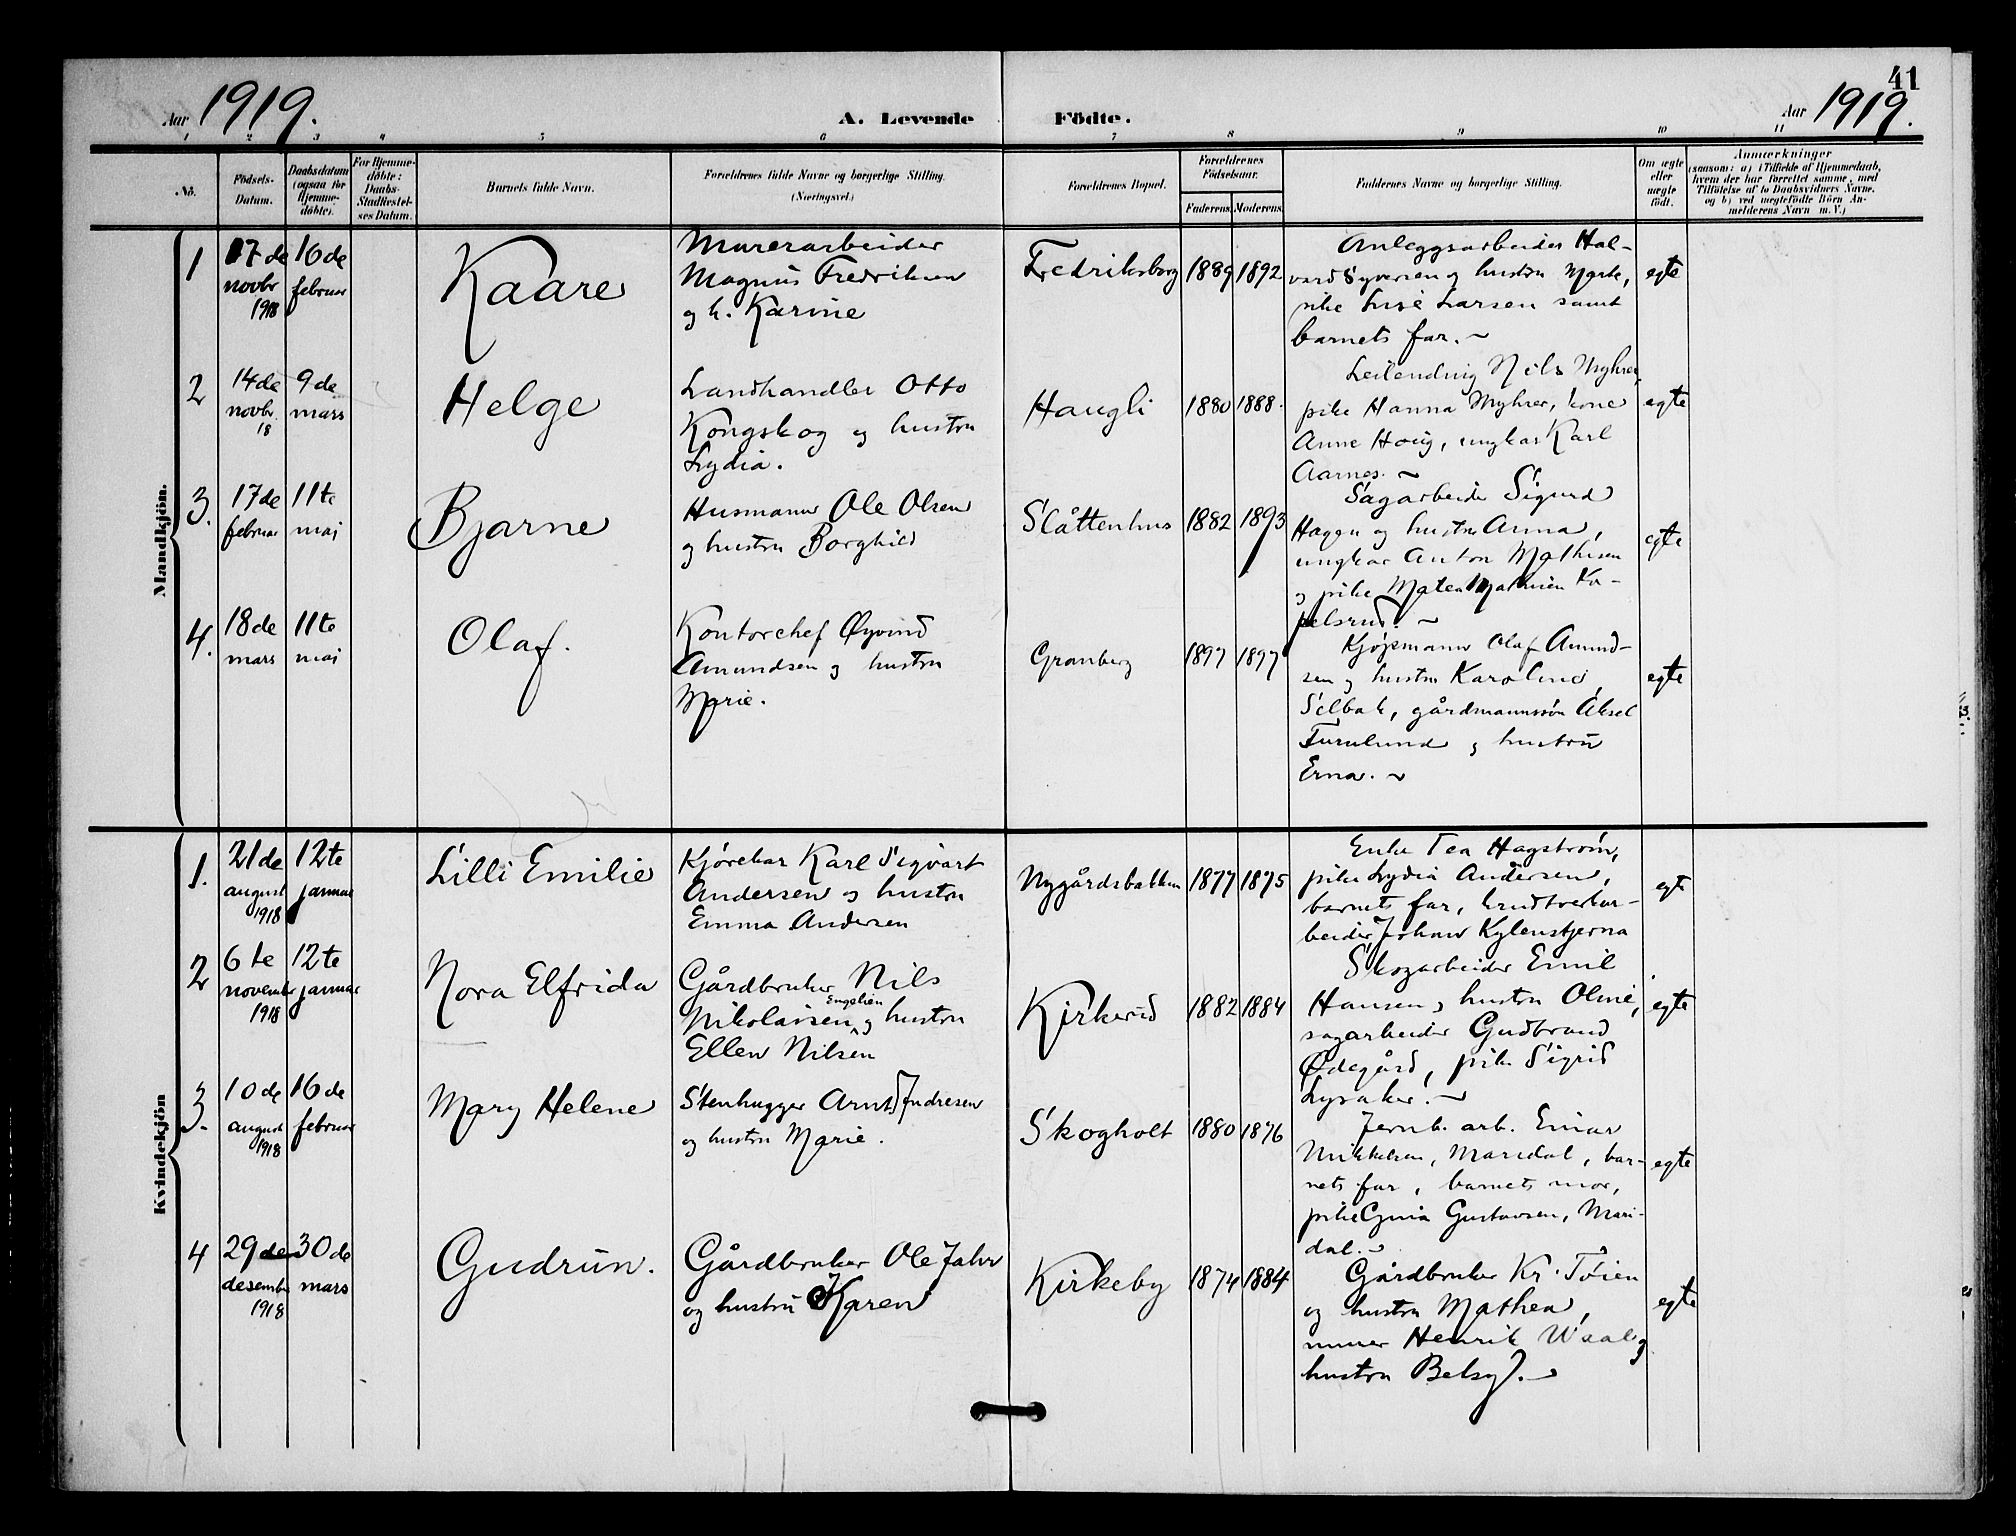 41
Aar 1919.
A. Levende Födte.
Aar 1919.
1 2 3 4 5 6 7 8 9 10 11
No.
Födsels-
Datum.
Daabsdatum
(ogsaa for
Hjemme-
döbte).
For Hjemme-
döbte:
Daabs-
Stadfæstel-
ses Datum.
Barnets fulde Navn.
Forældrenes fulde Navne og borgerlige Stilling.
(Næringsvei.)
Forældrenes Bopæl.
Forældrenes
Födselsaar.
Faderens. Moderens.
Faddernes Navne og borgerlige Stilling.
Om ægte
eller
uægte
födt.
Anmærkninger
(saasom: a) i Tilfælde af Hjemmedaab,
hvem der har forrettet samme, med
Tilföielse af to Daabsvidners Navne,
og b) ved uægtefödte Börn An-
melderens Navn m.V.)
Mandkjön.
1
17de
novbr
1918
16de
februar
Kaare
Murerarbeider
Magnus Fredriksen
og h. Karine
Fredriksborg
1889
1892
Anleggsarbeider Hal-
vard Syversen og hustru Marte,
pike Lise Larsen samt
barnets far.
egte
2
14de
novbr.
18
9de
mars
Helge
Landhandler Otto
Kongskog og hustru
Lydia.
Haugli
1880
1888.
Leilending Nils Myhrer,
pike Hanna Myhrer, kone
Anne Hoeig, ungkar Karl
Aarnes.
egte
3.
17de
februar
11te
mai
Bjarne
Husmann Ole Olsen
og hustru Borghild
Slåttenhus
1882
1893
Sagarbeider Sigurd
Hagen og hustru Anna,
ungkar Anton Mathisen
og pike Maten Mathisen Ka-
pelsrud.
egte
4.
18de
mars
11te
mai
Olaf.
Kontorchef Øyvind
Amundsen og hustru
Marie.
Granberg
1897
1897
Kjøpmann Olaf Amund-
sen og hustru Karoline,
Selbak, gårdmannssøn Aksel
Furulund og hustru
Erna.
egte
Kvindekjön
1.
21de
august
1918
12te
januar
Lilli Emilie
Kjørekar Karl Sigvart
Andersen og hustru
Emma Andersen
Nygårdsbakken
1877
1875
Enke Tea Hagstrøm,
pike Lydia Andersen,
barnets far, krudtverkar-
beider Johan Kylenstjerna
egt
2
6te
november
1918
12te
januar
Nora Elfrida
Gårdbruker Nils
Nikolaisen Engelien og hustru
Ellen Nilsen
Kirkerud
1882
1884
Skogarbeider Emil
Hansen og hustru Oline,
sagarbeider Gudbrand
Ødegård, pike Sigrid
Lysaker.
egte
3.
10de
august
1918
16de
februar
Mary Helene
Stenhugger Arnt Andresen
og hustru Marie.
Skogholt
1880
1876
Jernb. arb. Einar
Mikkelsen, Maridal, bar-
nets far, barnets mor,
pike Gina Gustavsen, Mari-
dal.
egte
4
29de
desember
1918
30de
mars
Gudrun.
Gårdbruker Ole Jahr
og hustru Karen
Kirkeby
1874
1884
Gårdbruker Kr. Tøien
og hustru Mathea,
murer Henrik Waal og
hustru Betsy.
egte